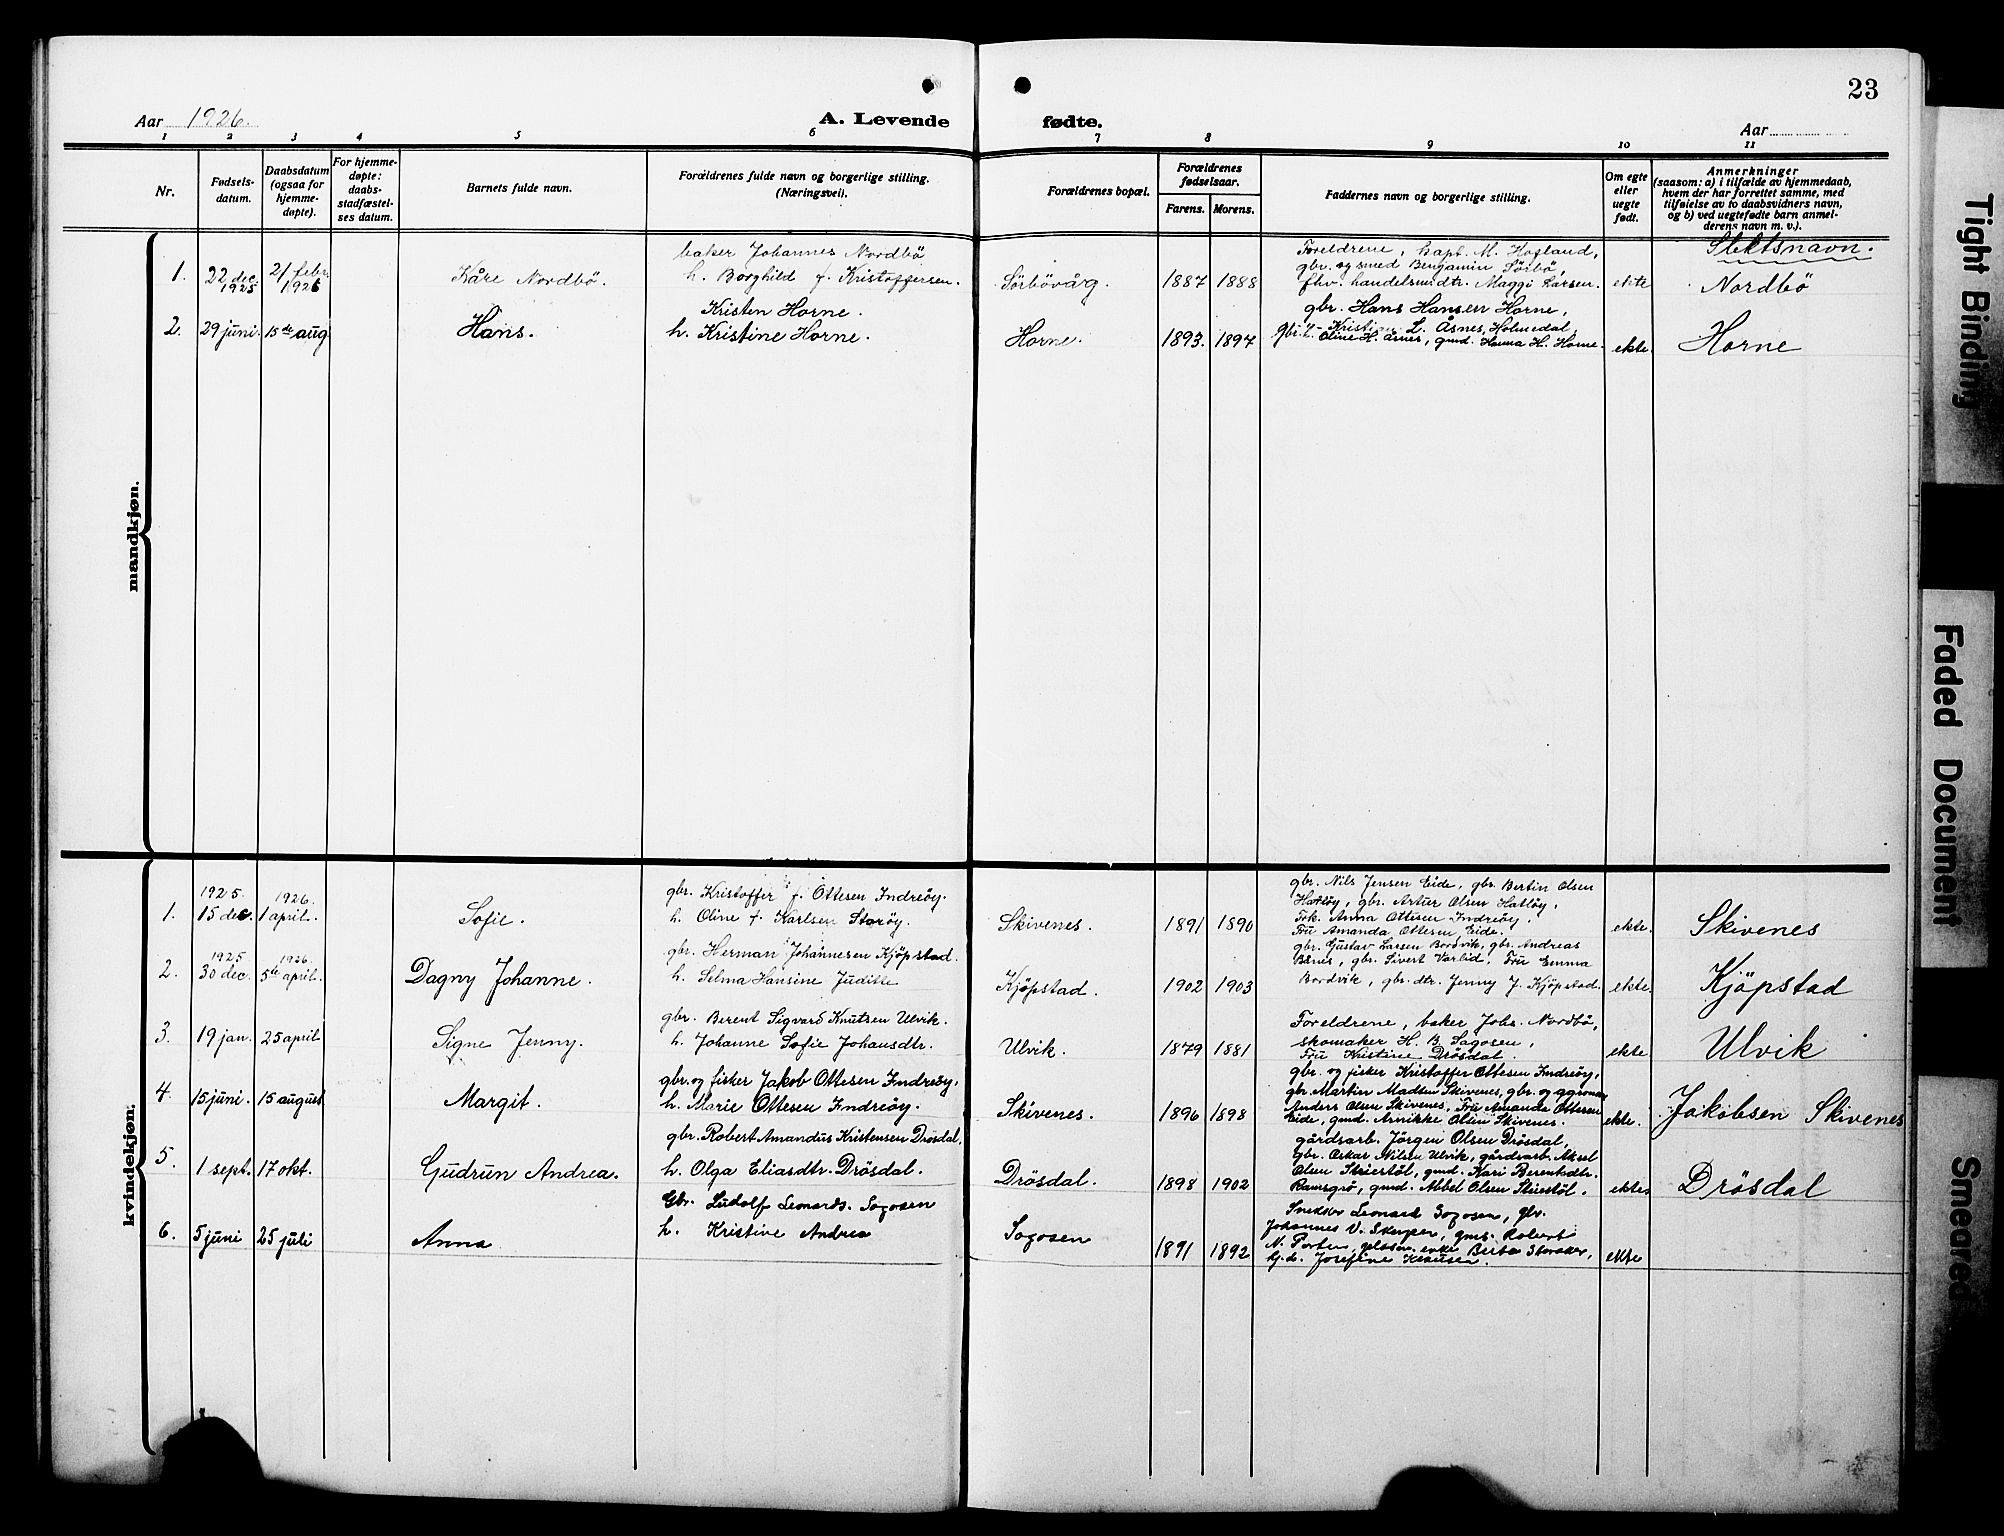 23
Aar 1926.
A. Levende fødte.
Aar
1 2 3 4 5 6 7 8 9 10 11
Nr.
Fødsels-
datum.
Daabsdatum
(ogsaa for
hjemme-
døpte).
For hjemme-
døpte:
daabs-
stadfæstel-
ses datum.
Barnets fulde navn.
Forældrenes fulde navn og borgerlige stilling.
(Næringsvei).
Forældrenes bopæl.
Forældrenes
fødselsaar.
Farens. Morens.
Faddernes navn og borgerlige stilling.
Om egte
eller
uegte
født.
Anmerkninger
(saasom: a) i tilfælde av hjemmedaab,
hvem der har forrettet samme, med
tilføielse av to daabsvidners navn,
og b) ved uegtefødte barn anmel-
derens navn m. v.).
Slektsnavn.
mandkjøn.
1.
22 dec.
1925
21 febr.
1926
Kåre Nordbö.
baker Johannes Nordbö
h. Borghild f. Kristoffersen.
Sörbövåg.
1887 1888
Foreldrene, kapt. M. Hofland,
gbr. og smed Benjamin Sörbö,
fhv. handelsmdtr. Maggi Larsen.
ekte
Nordbö
2.
29 juni.
15de aug.
Hans.
Kristen Horne.
h. Kristine Horne.
Horne.
1893. 1897
gbr. Hans Hansen Horne,
gbr. L. Åsnes, Holmedal,
Oline H. Åsnes, gmd. Hanna H. Horne.
ekte
Horne
kvindekjøn.
1.
1925.
15 dec.
1926.
1 april.
Sofie.
gbr. Kristoffer f. Ottesen Indreöy.
h. Oline f. Karlsen Storöy.
Skivenes.
1891 1890
gbr. Nils Jensen Eide, gbr. Bertin Olsen
Hatlöy, gbr. Artur Olsen Hatlöy,
Frk. Anna Ottesen Indreöy.
Fru Amanda Ottesen Eide.
ekte.
Skivenes
2.
1925
30 dec.
1926.
5te april.
Dagny Johanne.
gbr. Herman Johannesen Kjöpstad.
h. Selma Hansine Juditte
Kjöpstad.
1902 1903
gbr. Gustav Larsen Bordvik, gbr. Andreas
gbr. Sivert Varlid, Fru Emma
Bordvik, gbr. dtr. Jenny J. Kjöpstad.
ekte.
Kjöpstad
3.
19 jan.
25 april
Signe Jenny.
gbr. Berent Sigvard Knutsen Ulvik.
h. Johanne Sofie Johansdtr.
Ulvik.
1879 1881
Foreldrene, baker Johs. Nordbö,
skomaker H. B. Sagosen,
Fru Kristine Drösdal.
ekte
Ulvik
4.
15 juni.
15 august
Margit.
gbr. og fisker Jakob Ottesen Indreöy,
h. Marie Ottesen Indreöy.
Skivenes.
1896 1898
gbr. og fisker Kristoffer Ottesen Indreöy,
gbr. Martin Madsen Skivenes, gbr. og agronom
Anders Olsen Skivenes, Fru Amanda Ottesen
Eide, gmd. Annikke Olsen Skivenes.
ekte.
Jakobsen Skivenes
5.
1 sept.
17 okt.
Gudrun Andrea.
gbr. Robert Amandus Kristensen Drösdal,
h. Olga Eliasdtr. Drösdal.
Drösdal.
1898 1902
gårdsarb. Jörgen Olsen Drösdal,
gbr. Oskar Nilsen Ulvik, gårdsarb. Aksel
Olsen gmd. Kari Berentsdtr.
gmd. Abbel Olsen
ekte
Drösdal
6.
5 juni
25 juli
Anna
Gbr. Ludolf Leonards. Sogosen
h. Kristine Andrea
Sogosen
1891 1892
Snekker Leonard Sogosen, gbr.
Johannes V. gms. Robert
N. enke Berta
Josefine
ekte
Tight Binding
Faded Document
Smeared